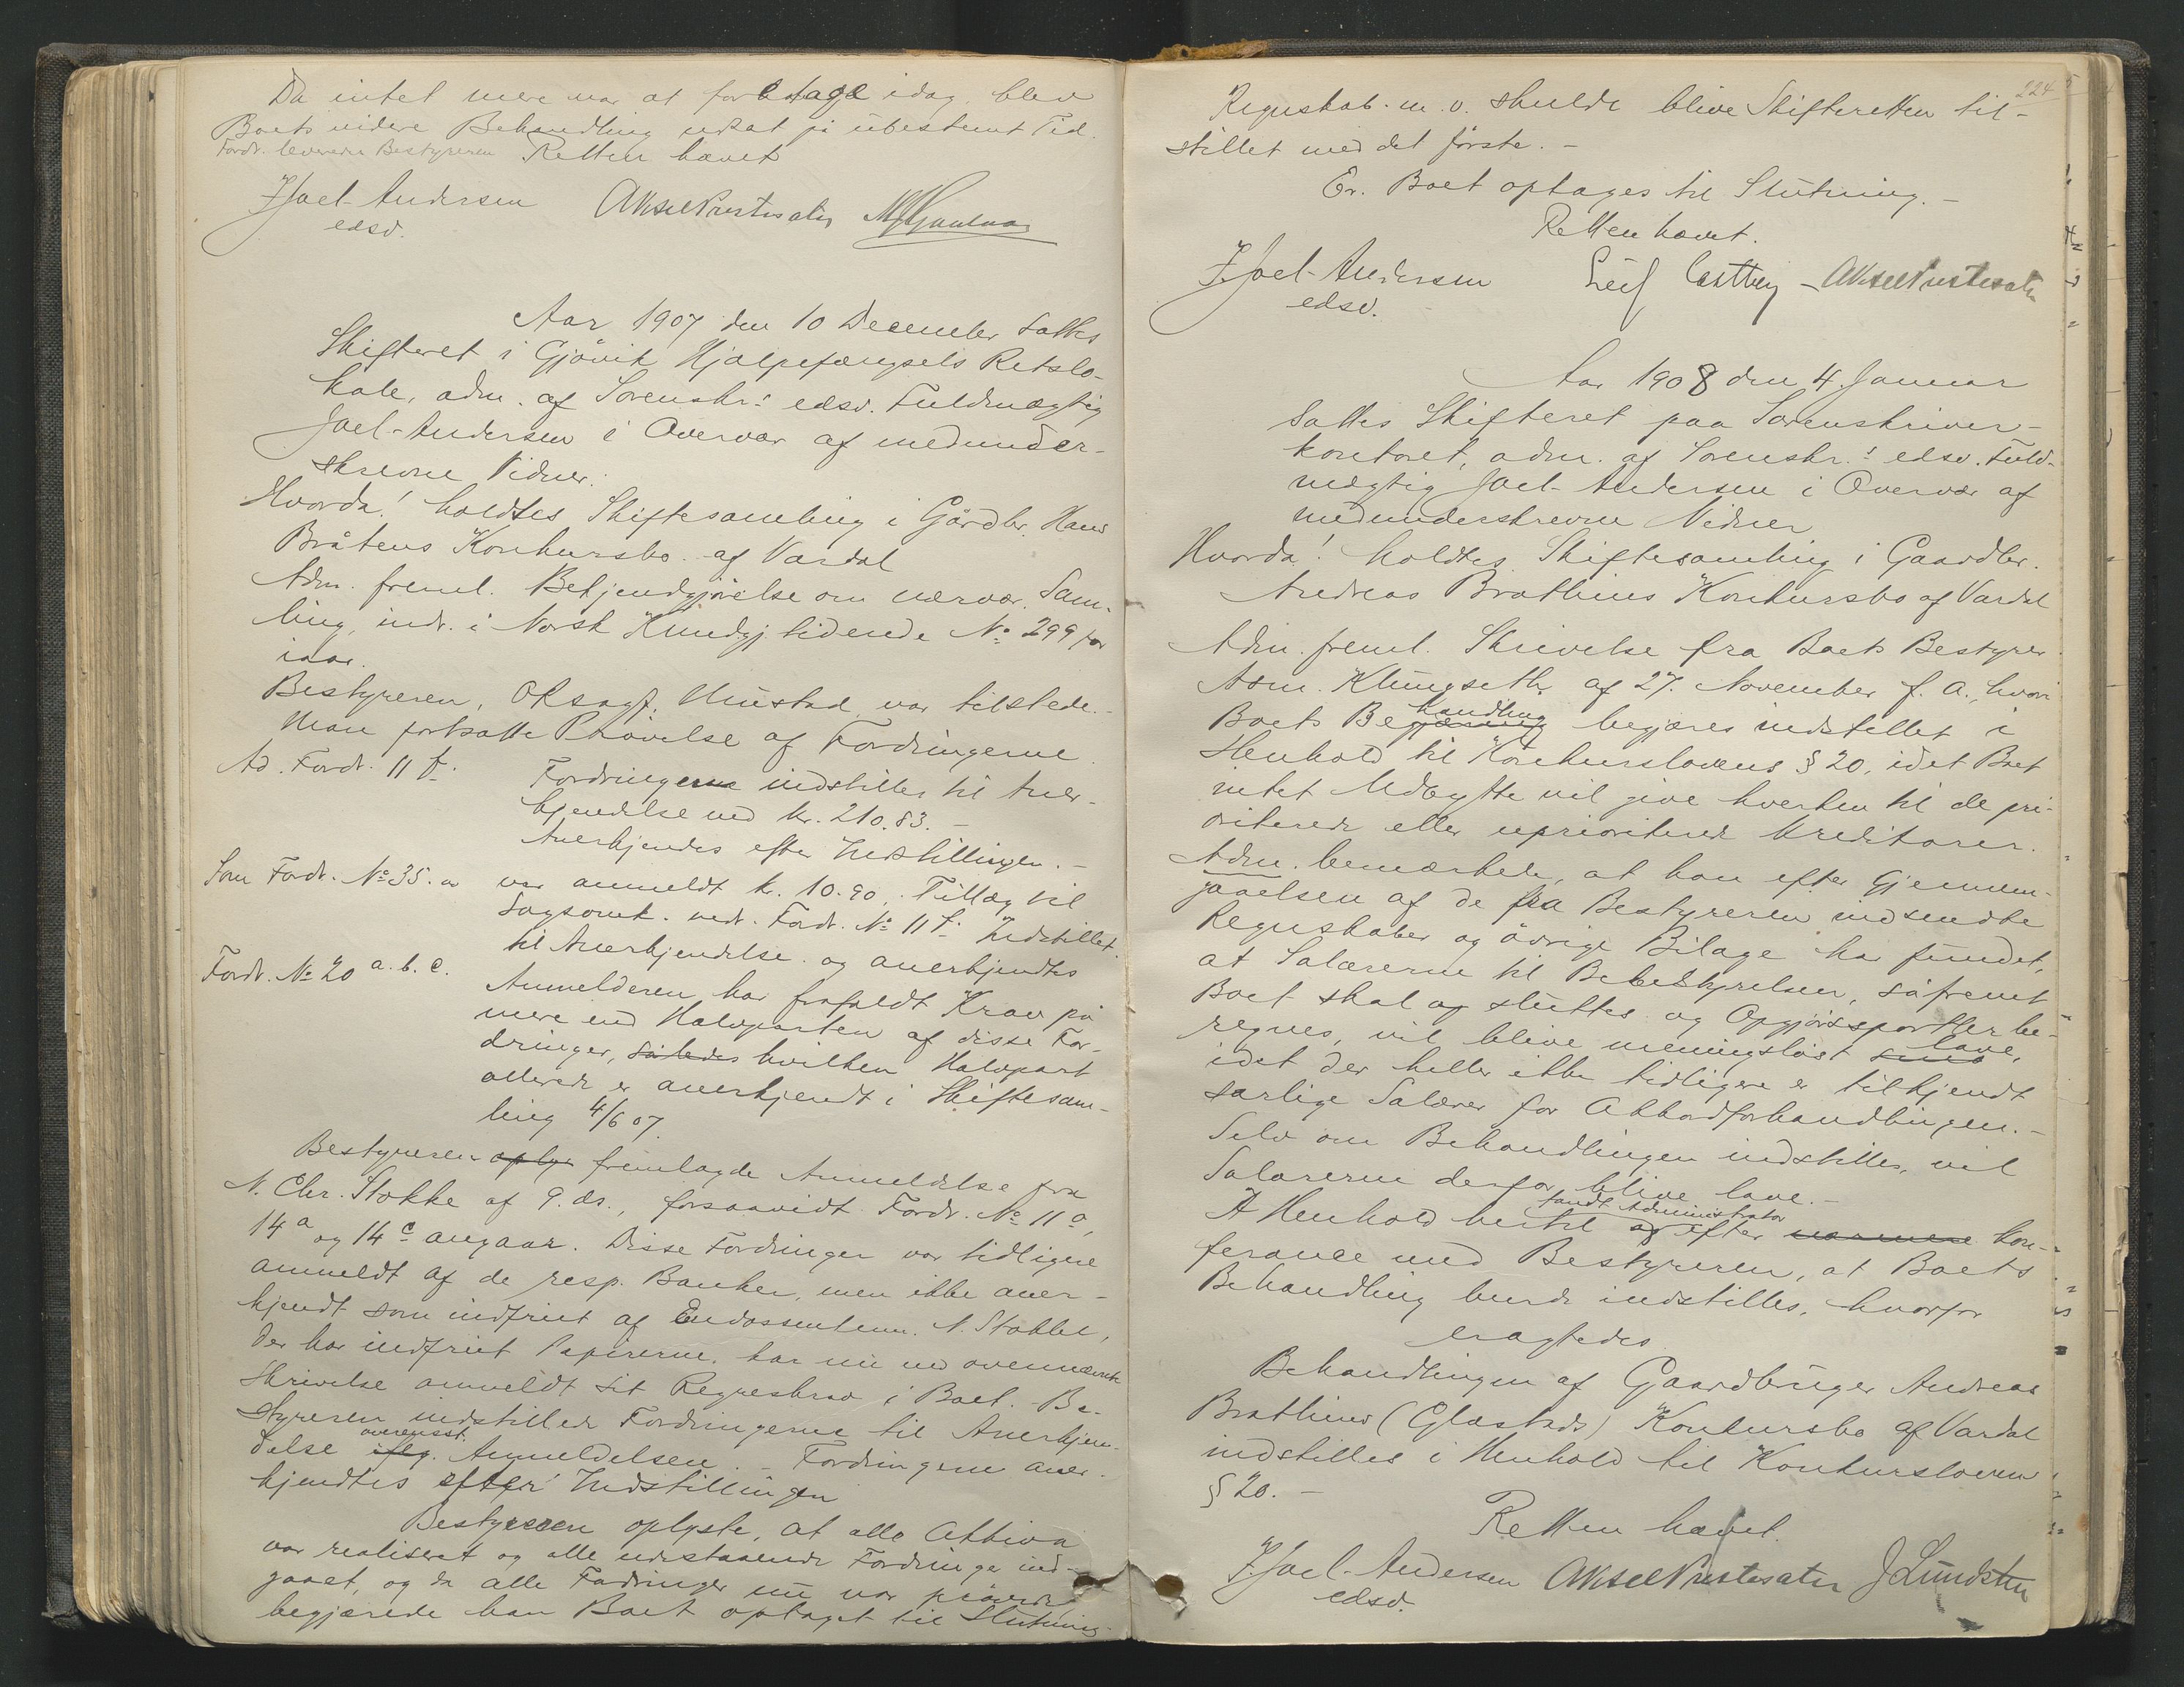 Da intet mere var at foretage idag, blev
Boets videre Behandling udsat på ubestemt Tid.
Fordr. leveredes Bestyreren Retten hævet
J. Joel-Andersen Aksel Præstesæter
edsv.
Aar 1907 den 10 December sattes
Skifteret i Gjövik Hjælpefængsels Retslo-
kale, adm. af Sorenskr.s edsv. Fuldmægtig
Joel-Andersen i Overvær af medunder-
skrevne Vidner.
Hvorda! holdtes Skiftesamling i Gårdbr. Hans
Bråtens Konkursbo af Vardal
Adm. freml. Bekjendtgjörelse om nærvær. Sam-
ling, indr. i Norsk Kundgj.tidende No 299 for
iaar.
Bestyreren, Oksagf. Mustad var tilstede.-
Man fortsatte Prövelse af Fordringerne.
Ad. Fordr. 11 f. Fordringerne indstilles til Aner-
kjendelse med kr. 210.83.-
Anerkjendes efter Indstillingen.-
Som Fordr. No 35. var anmeldt kr. 10.90. Tillæg til
Sagsomk. vedr. Fordr. No 11 f. Indstillet
til Anerkjendelse og anerkjendtes
Fordr. No 20 a.b.c. Anmelderen har frafaldt Krav på
mere end Halvparten af disse For-
dringer, således hvilken Halvpart
allerede er anerkjendt i Skiftesam-
ling 4/6 07.
Bestyreren oplys fremlagde Anmeldelse fra
N. Chr. Stokke af 9. ds., forsaavidt Fordr. No 11 a,
14 a og 14 c angaar. Disse Fordringer var tidligere
anmeldt af de resp. Banker, men ikke aner-
kjendt som indfriet af Endossenten. N. Stokke,
der har indfriet Papirerne, har nu ved ovennævnte
Skrivelse anmeldt sit Regreskrav i Boet. Be-
styreren indstillede Fordringerne til Anerkjen-
overensst.
delse iflg. Anmeldelsen.- Fordringerne aner-
kjendtes efter Indstillingen
Bestyreren oplyste, at alle Aktiva
var realiseret og alle udestaaende Fordringer ind-
gaaet, og da alle Fordringer nu var prövede
begjærede han Boet optaget til Slutning.
224
Regnskab m.v. skulde blive Skifteretten til-
stillet med det förste.-
Er. Boet optages til Slutning.-
Retten hævet.
J. Joel-Andersen Leif Castberg - Aksel Præstesæter
edsv.
Aar 1908 den 4. Januar
sattes Skifteret paa Sorenskriver-
kontoret, adm. af Sorenskr.s edsv. Fuld-
mægtig Joel-Andersen i Overvær af
medunderskrevne Vidner
Hvorda! holdtes Skiftesamling i Gaardbr.
Andreas Brathens Konkursbo af Vardal
Adm. freml. Skrivelse fra Boets Bestyrer
Klungseth af 27. November f. A., hvori
handling
Boets Begjæring begjæres indstillet i
Henhold til Konkurslovens § 20, idet Boet
intet Udbytte vil give hverken til de pri-
oriterede eller uprioriterede Kreditorer.
Adm. bemærkede, at han efter Gjennem-
gaaelsen af de fra Bestyreren indsendte
Regnskaber og övrige Bilage har fundet,
at Salærerne til Bobestyrelsen, såfremt
Boet skal og sluttes og Opgjörssportler be-
regnes, vil blive meningslöst små lave,
idet der heller ikke tidligere er tilkjendt
særlige Salærer for Akkordforhandlingen.-
Selv om Behandlingen indstilles, vil
Salærerne derfor blive lave.-
fandt Administrator
I Henhold hertil og efter nærmere kon-
ferance med Bestyreren, at Boets
Behandling burde indstilles, hvorfor
eragtedes
Behandlingen af Gaardbruger Andreas
Brathens (Glæstads) Konkursbo af Vardal
indstilles i Henhold til Konkursloven
§ 20.-
Retten hævet.
J. Joel-Andersen Aksel Præstesæter J Lundsten
edsv.